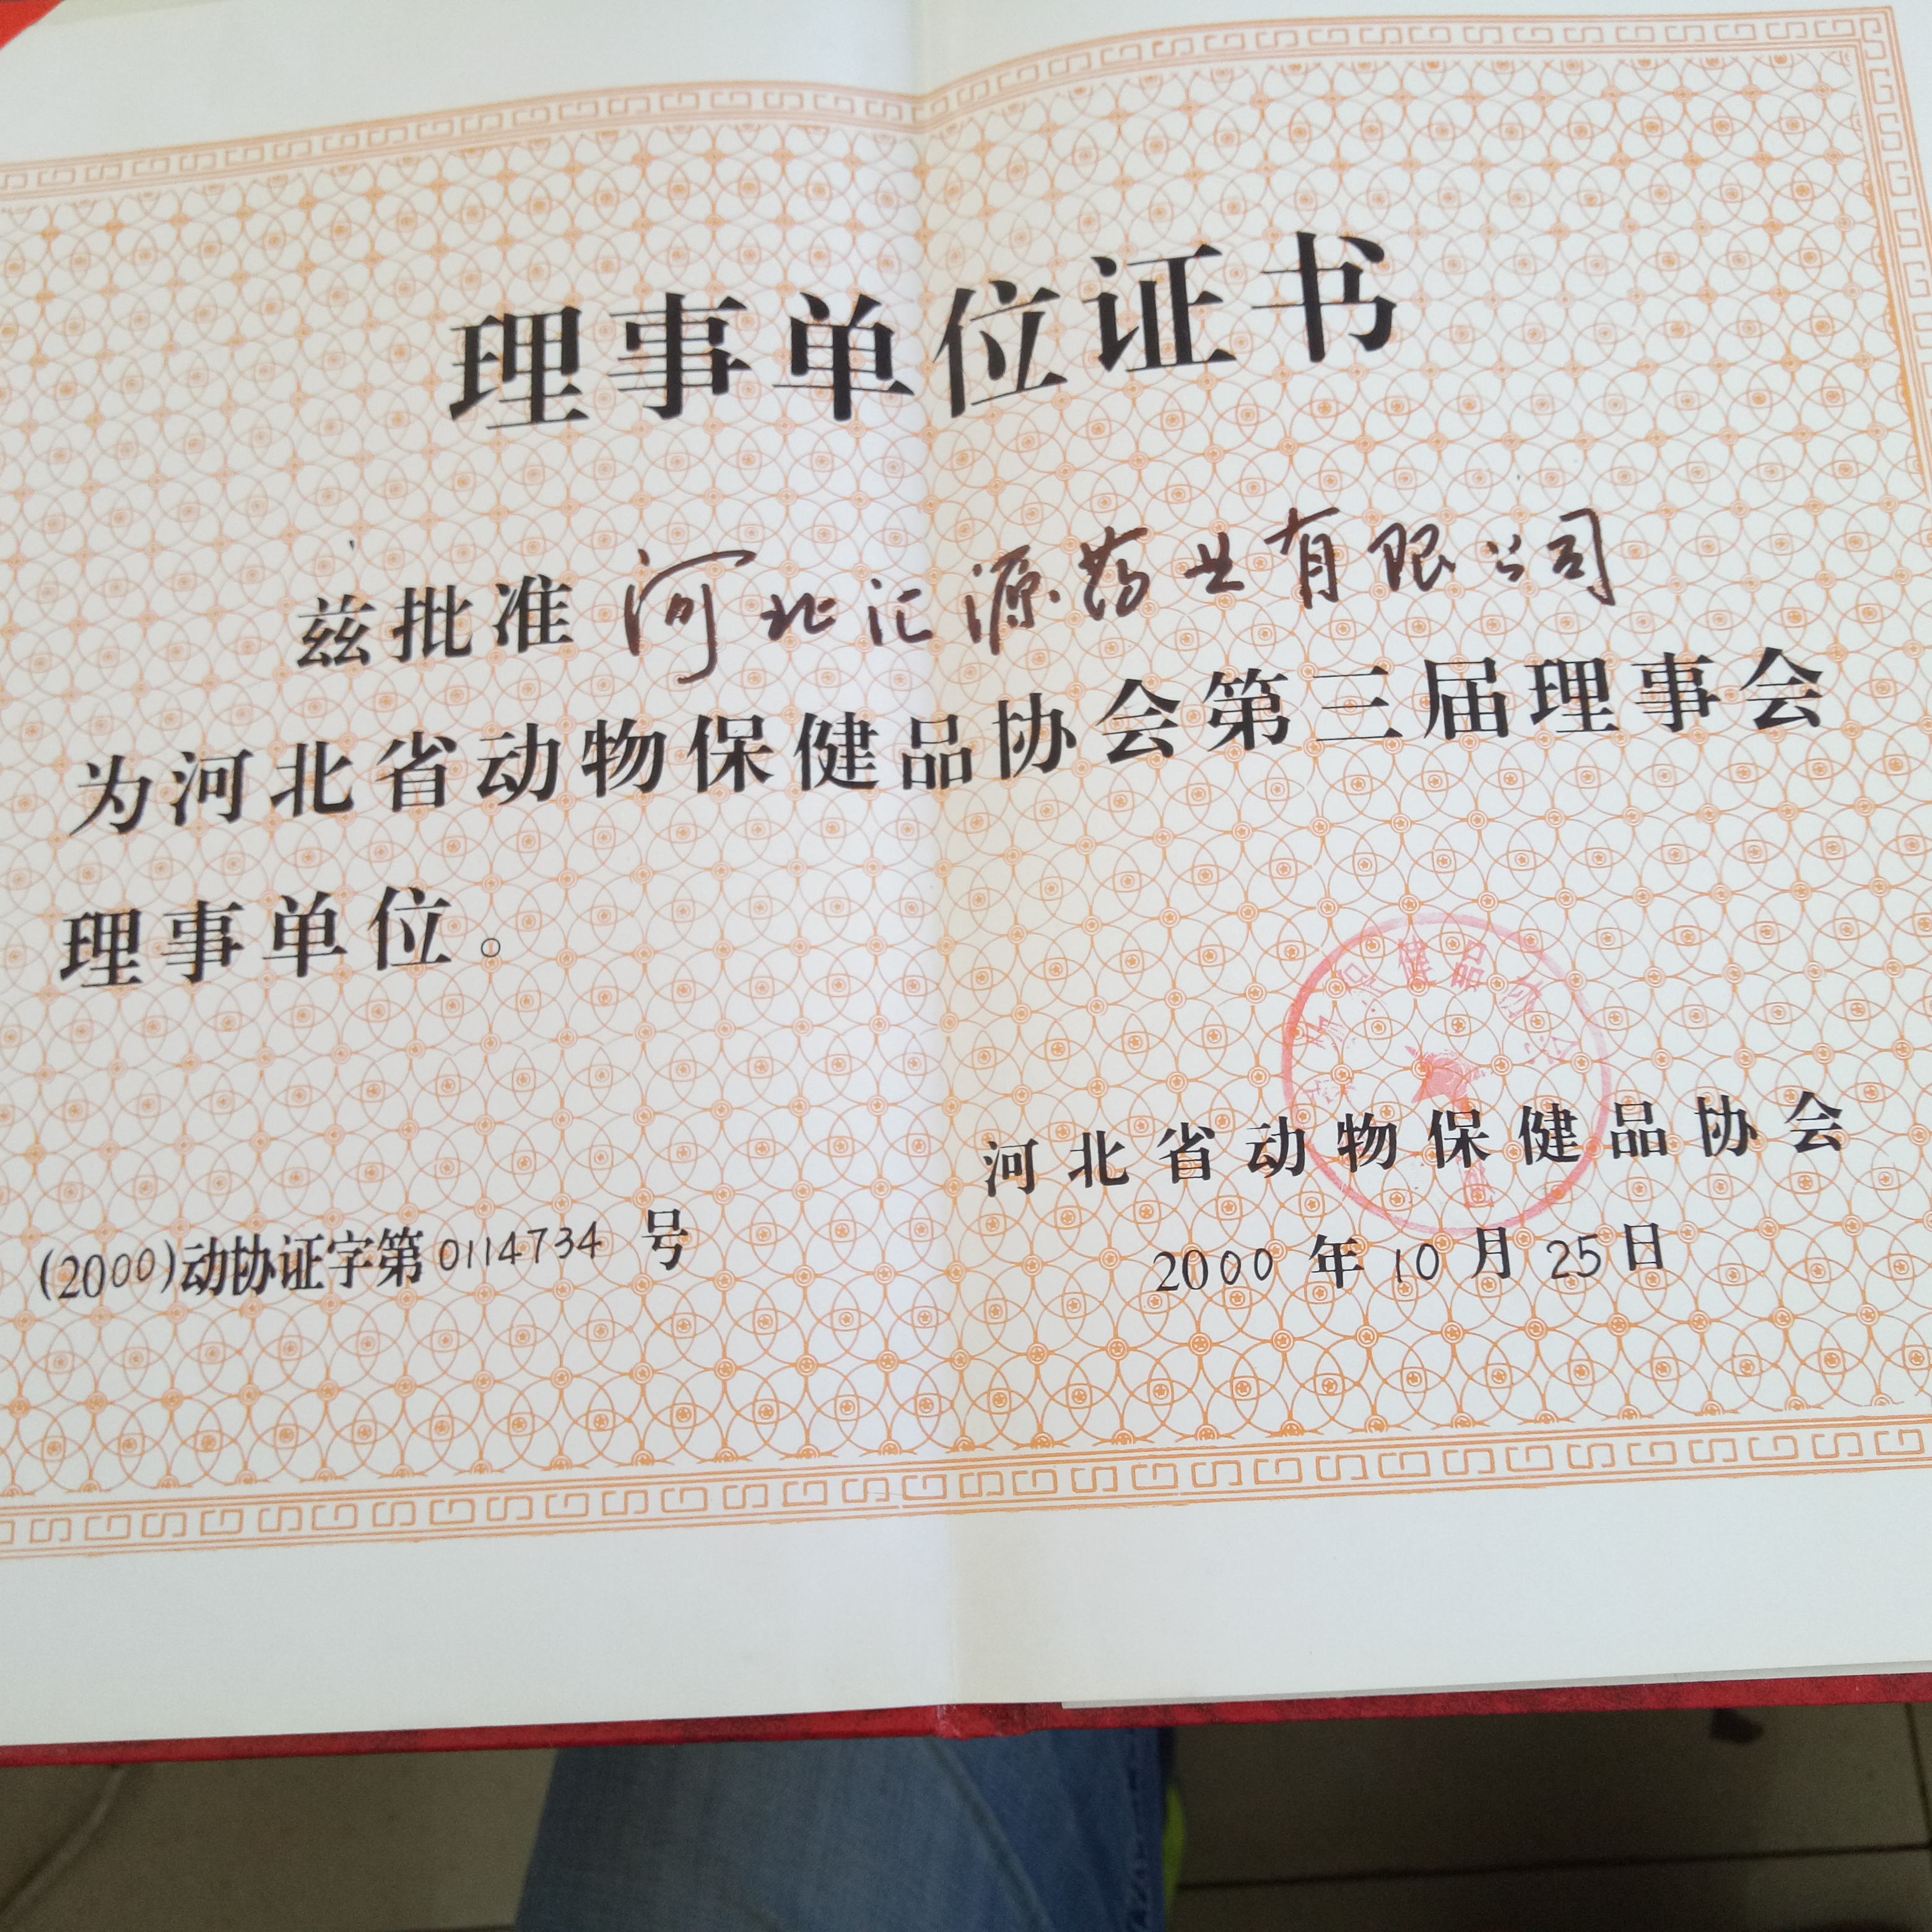 理事单位证书
兹批准 河北汇源药业有限公司
为河北省动物保健品协会第三届理事会
理事单位。
健品协会
河北省动物保健品协会
(2000)动协证字第0114734 号
2000 年 10 月 25 日